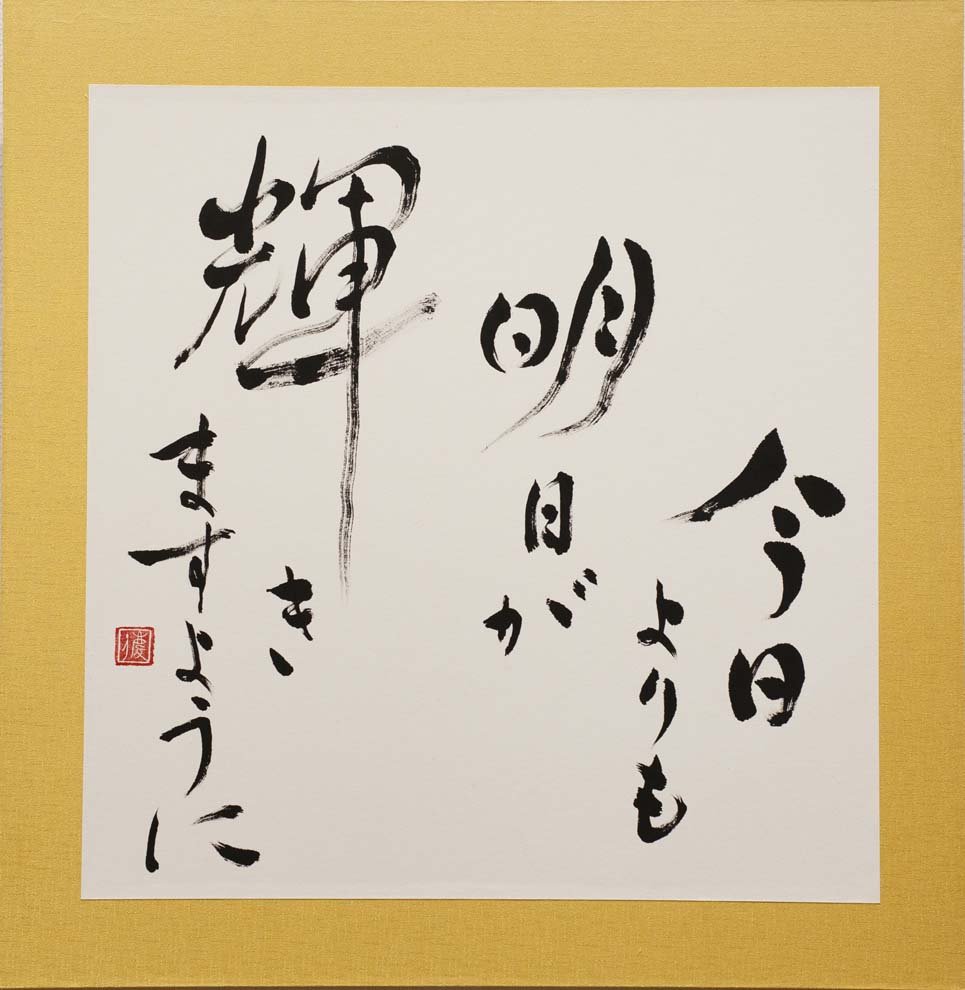 今日
よりも
明日が
輝き
ますように